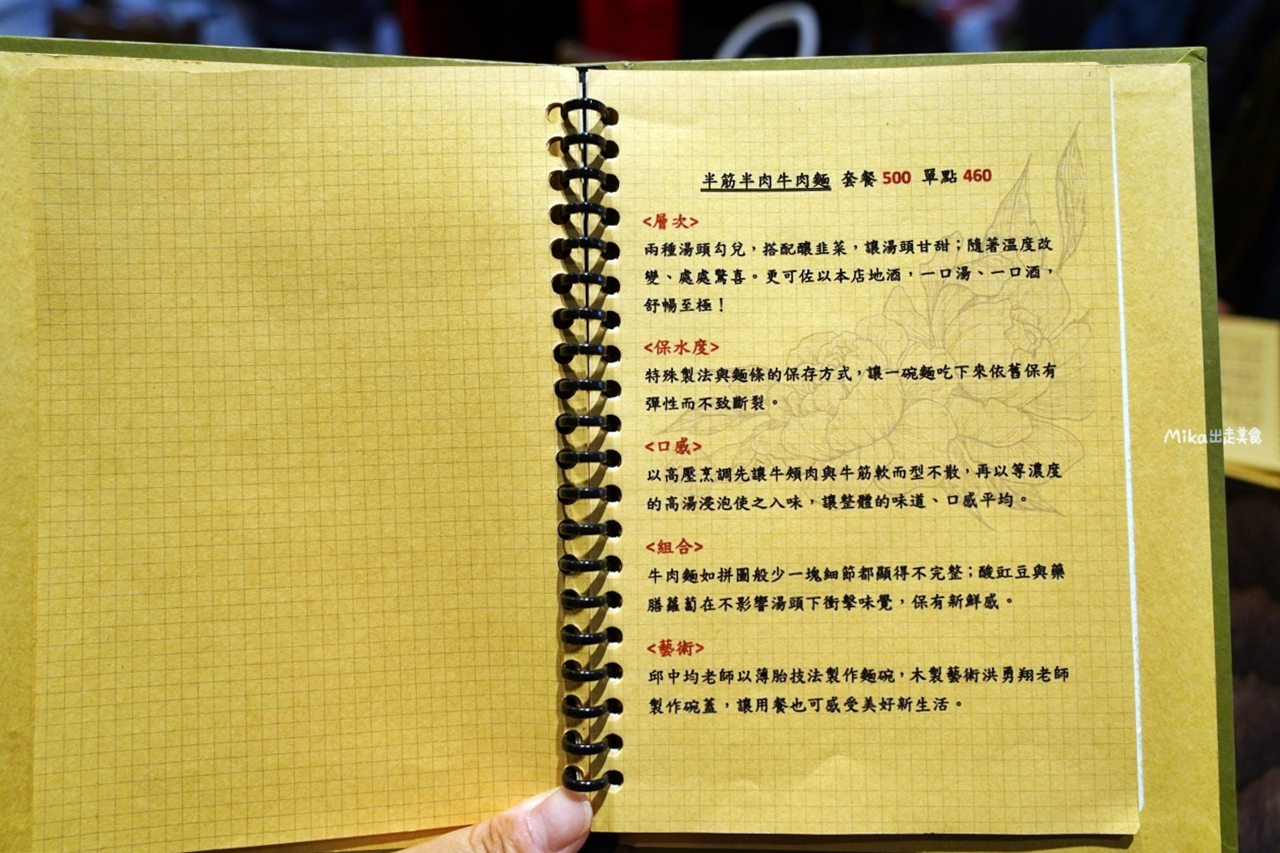 半筋半肉牛肉麵 套餐 500 單點 460
<層次>
兩種湯頭勾兌，搭配釀韭菜，讓湯頭甘甜；隨著溫度改
變、處處驚喜。更可佐以本店地酒，一口湯、一口酒，
舒暢至極！
<保水度>
特殊製法與麵條的保存方式，讓一碗麵吃下來依舊保有
彈性而不致斷裂。
<口感>
以高壓烹調先讓牛頰肉與牛筋軟而型不散，再以等濃度
的高湯浸泡使之入味，讓整體的味道、口感平均。
<組合>
牛肉麵如拼圖般少一塊細節都顯得不完整；酸豇豆與藥
膳蘿蔔在不影響湯頭下衝擊味覺，保有新鮮感。
<藝術>
邱中均老師以薄胎技法製作麵碗，木製藝術洪勇翔老師
製作碗蓋，讓用餐也可感受美好新生活。
Mika出走美食